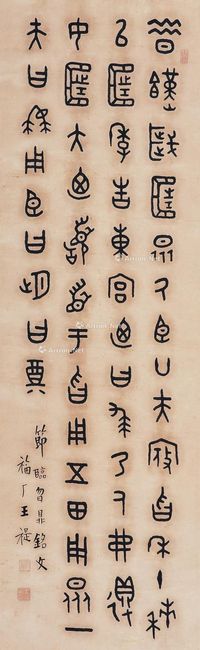 昔饉歲匡眾厥臣廿夫寇曶禾十秭
以匡季告東宮迺曰求乃人弗得
女匡大迺稽首于曶用五田用眾一
夫曰嗌用臣曰朏曰奠
節臨曶鼎銘文
福厂王禔